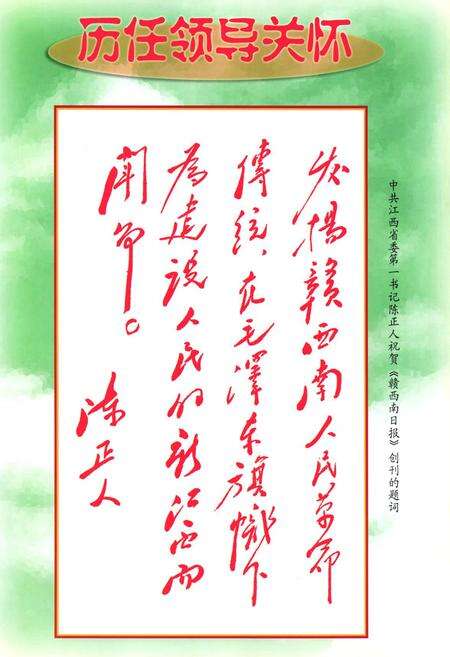 历任领导关怀
发揚赣西南人民革命
傳統，在毛澤东旗幟下
為建設人民的新江西而
鬪争。
陈正人
中共江西省委第一书记陈正人祝賀《赣西南日报》创刊的题词